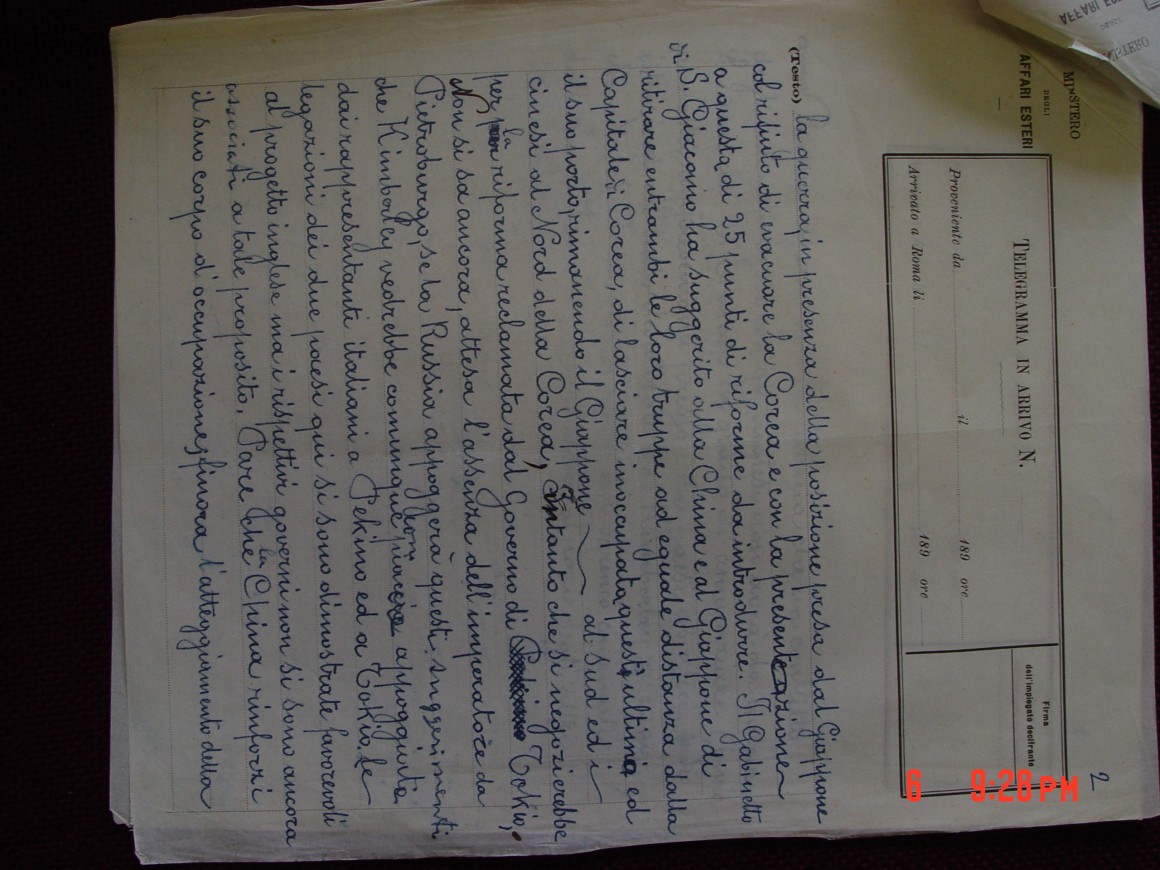 MINISTERO
DEGLI
AFFARI ESTERI
2
TELEGRAMMA IN ARRIVO N.
Proveniente da il 189 ore
Arrivato a Roma li 189 ore
Firma
dell'impiegato decifrante
(Testo) la guerra, in presenza della posizione presa dal Giappone
col rifiuto di evacuare la Corea e con la presentazione
a questa di 25 punti di riforme da introdurre. Il Gabinetto
di S. Giacomo ha suggerito alla China e al Giappone di
ritirare entrambi le loro truppe ad eguale distanza dalla
Capitale di Corea, di lasciare inoccupata quest'ultima ed
il suo porto, rimanendo il Giappone al Sud ed i
cinesi al Nord della Corea, Intanto che si negozierebbe
per la riforma reclamata dal Governo di Tokio.
Non si sa ancora, attesa l'assenza dell'imperatore da
Pietroburgo, se la Russia appoggerà questi suggerimenti
che Kimberley vedrebbe comunque con piacere appoggiati
dai rappresentanti italiani a Pekino ed a Tokio. Le
legazioni dei due paesi qui si sono dimostrate favorevoli
al progetto inglese ma i rispettivi governi non si sono ancora
associati a tale proposito. Pare che la China rinforzi
il suo corpo d'occupazione, finora l'atteggiamento della
6 9:28 PM